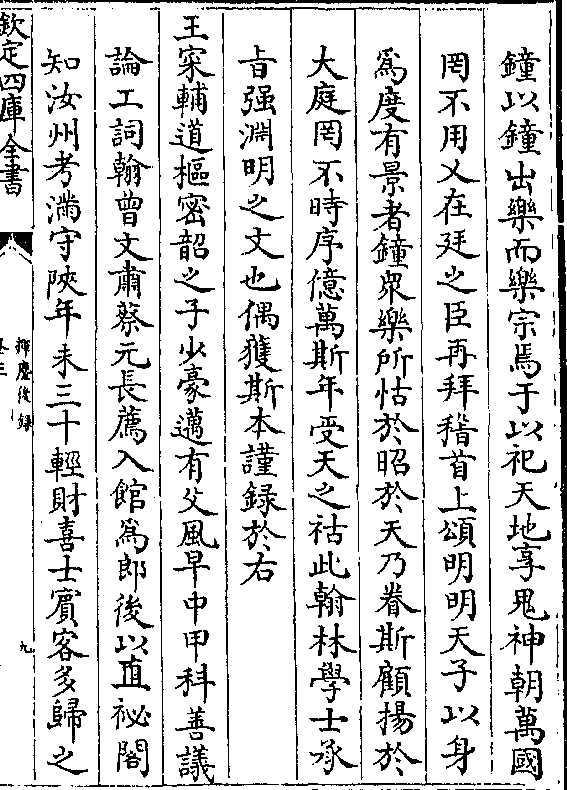 鐘以鐘出樂而樂宗焉于以祀天地享鬼神朝萬國
罔不用乂在廷之臣再拜稽首上頌明明天子以身
爲度有景者鐘衆樂所怙於昭於天乃眷斯顧揚於
大庭罔不時序億萬斯年受天之祜此翰林學士承
旨强淵明之文也偶獲斯本謹録於右
王寀輔道樞密韶之子少豪邁有父風早中甲科善議
論工詞翰曾文肅蔡元長薦入館爲郎後以直祕閣
知汝州考滿守陜年未三十輕財喜士賓客多歸之
欽定四庫全書
揮麈後録
卷三
九